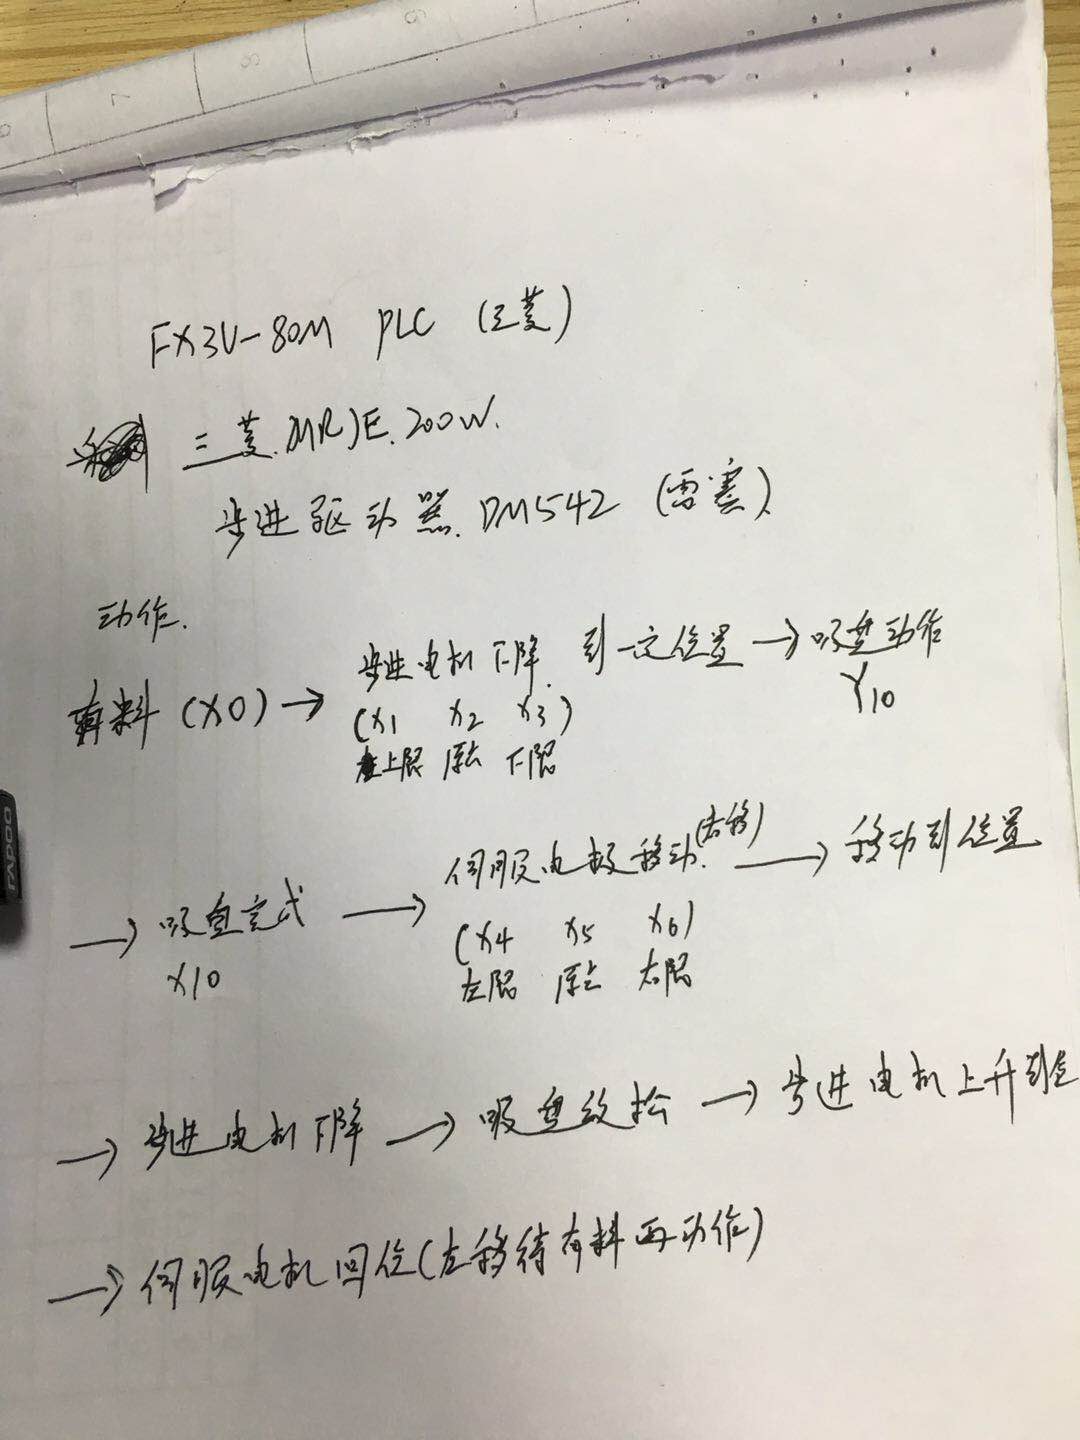 FX3U-80M PLC (三菱)
三菱.MRJE.200W.
步进驱动器.DM542 (雷赛)
动作.
有料(X0)→ 步进电机下降.到一定位置→吸盘动作
Y10
(X1 X2 X3)
上限 原点 下限
→吸盘完成→伺服电极移动.(右移)→移动到位置
X10
(X4 X5 X6)
左限 原点 右限
→步进电机下降→吸盘放松→步进电机上升到位
→伺服电机回位(左移待有料再动作)
rapoo